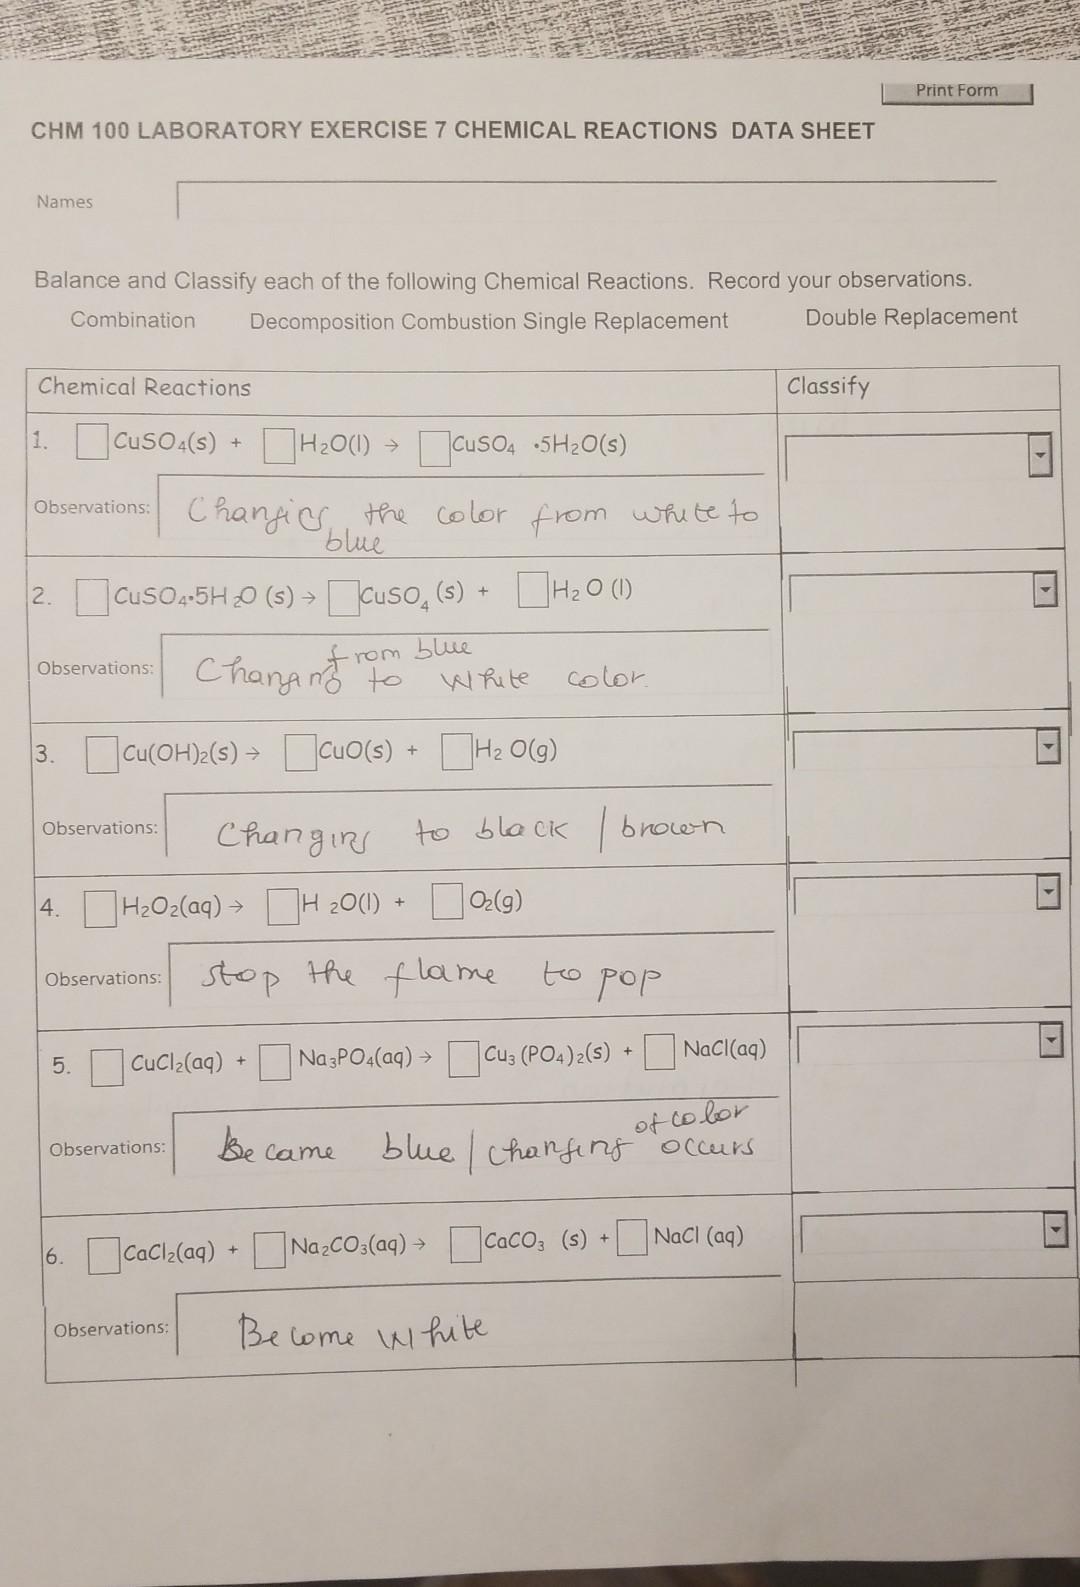 Print Form
CHM 100 LABORATORY EXERCISE 7 CHEMICAL REACTIONS DATA SHEET
Names
Balance and Classify each of the following Chemical Reactions. Record your observations.
Combination Decomposition Combustion Single Replacement Double Replacement
Chemical Reactions Classify
1. CuSO₄(s) + H₂O(l) → CuSO₄ ·5H₂O(s)
Observations: Changing the color from white to
blue
2. CuSO₄·5H₂O (s) → CuSO₄ (s) + H₂O (l)
from blue
Observations: Changing to white color.
3. Cu(OH)₂(s) → CuO(s) + H₂ O(g)
Observations: Changing to black / brown
4. H₂O₂(aq) → H ₂O(l) + O₂(g)
Observations: stop the flame to pop
5. CuCl₂(aq) + Na₃PO₄(aq) → Cu₃(PO₄)₂(s) + NaCl(aq)
of color
Observations: Became blue / changing occurs
6. CaCl₂(aq) + Na₂CO₃(aq) → CaCO₃ (s) + NaCl (aq)
Observations: Become white